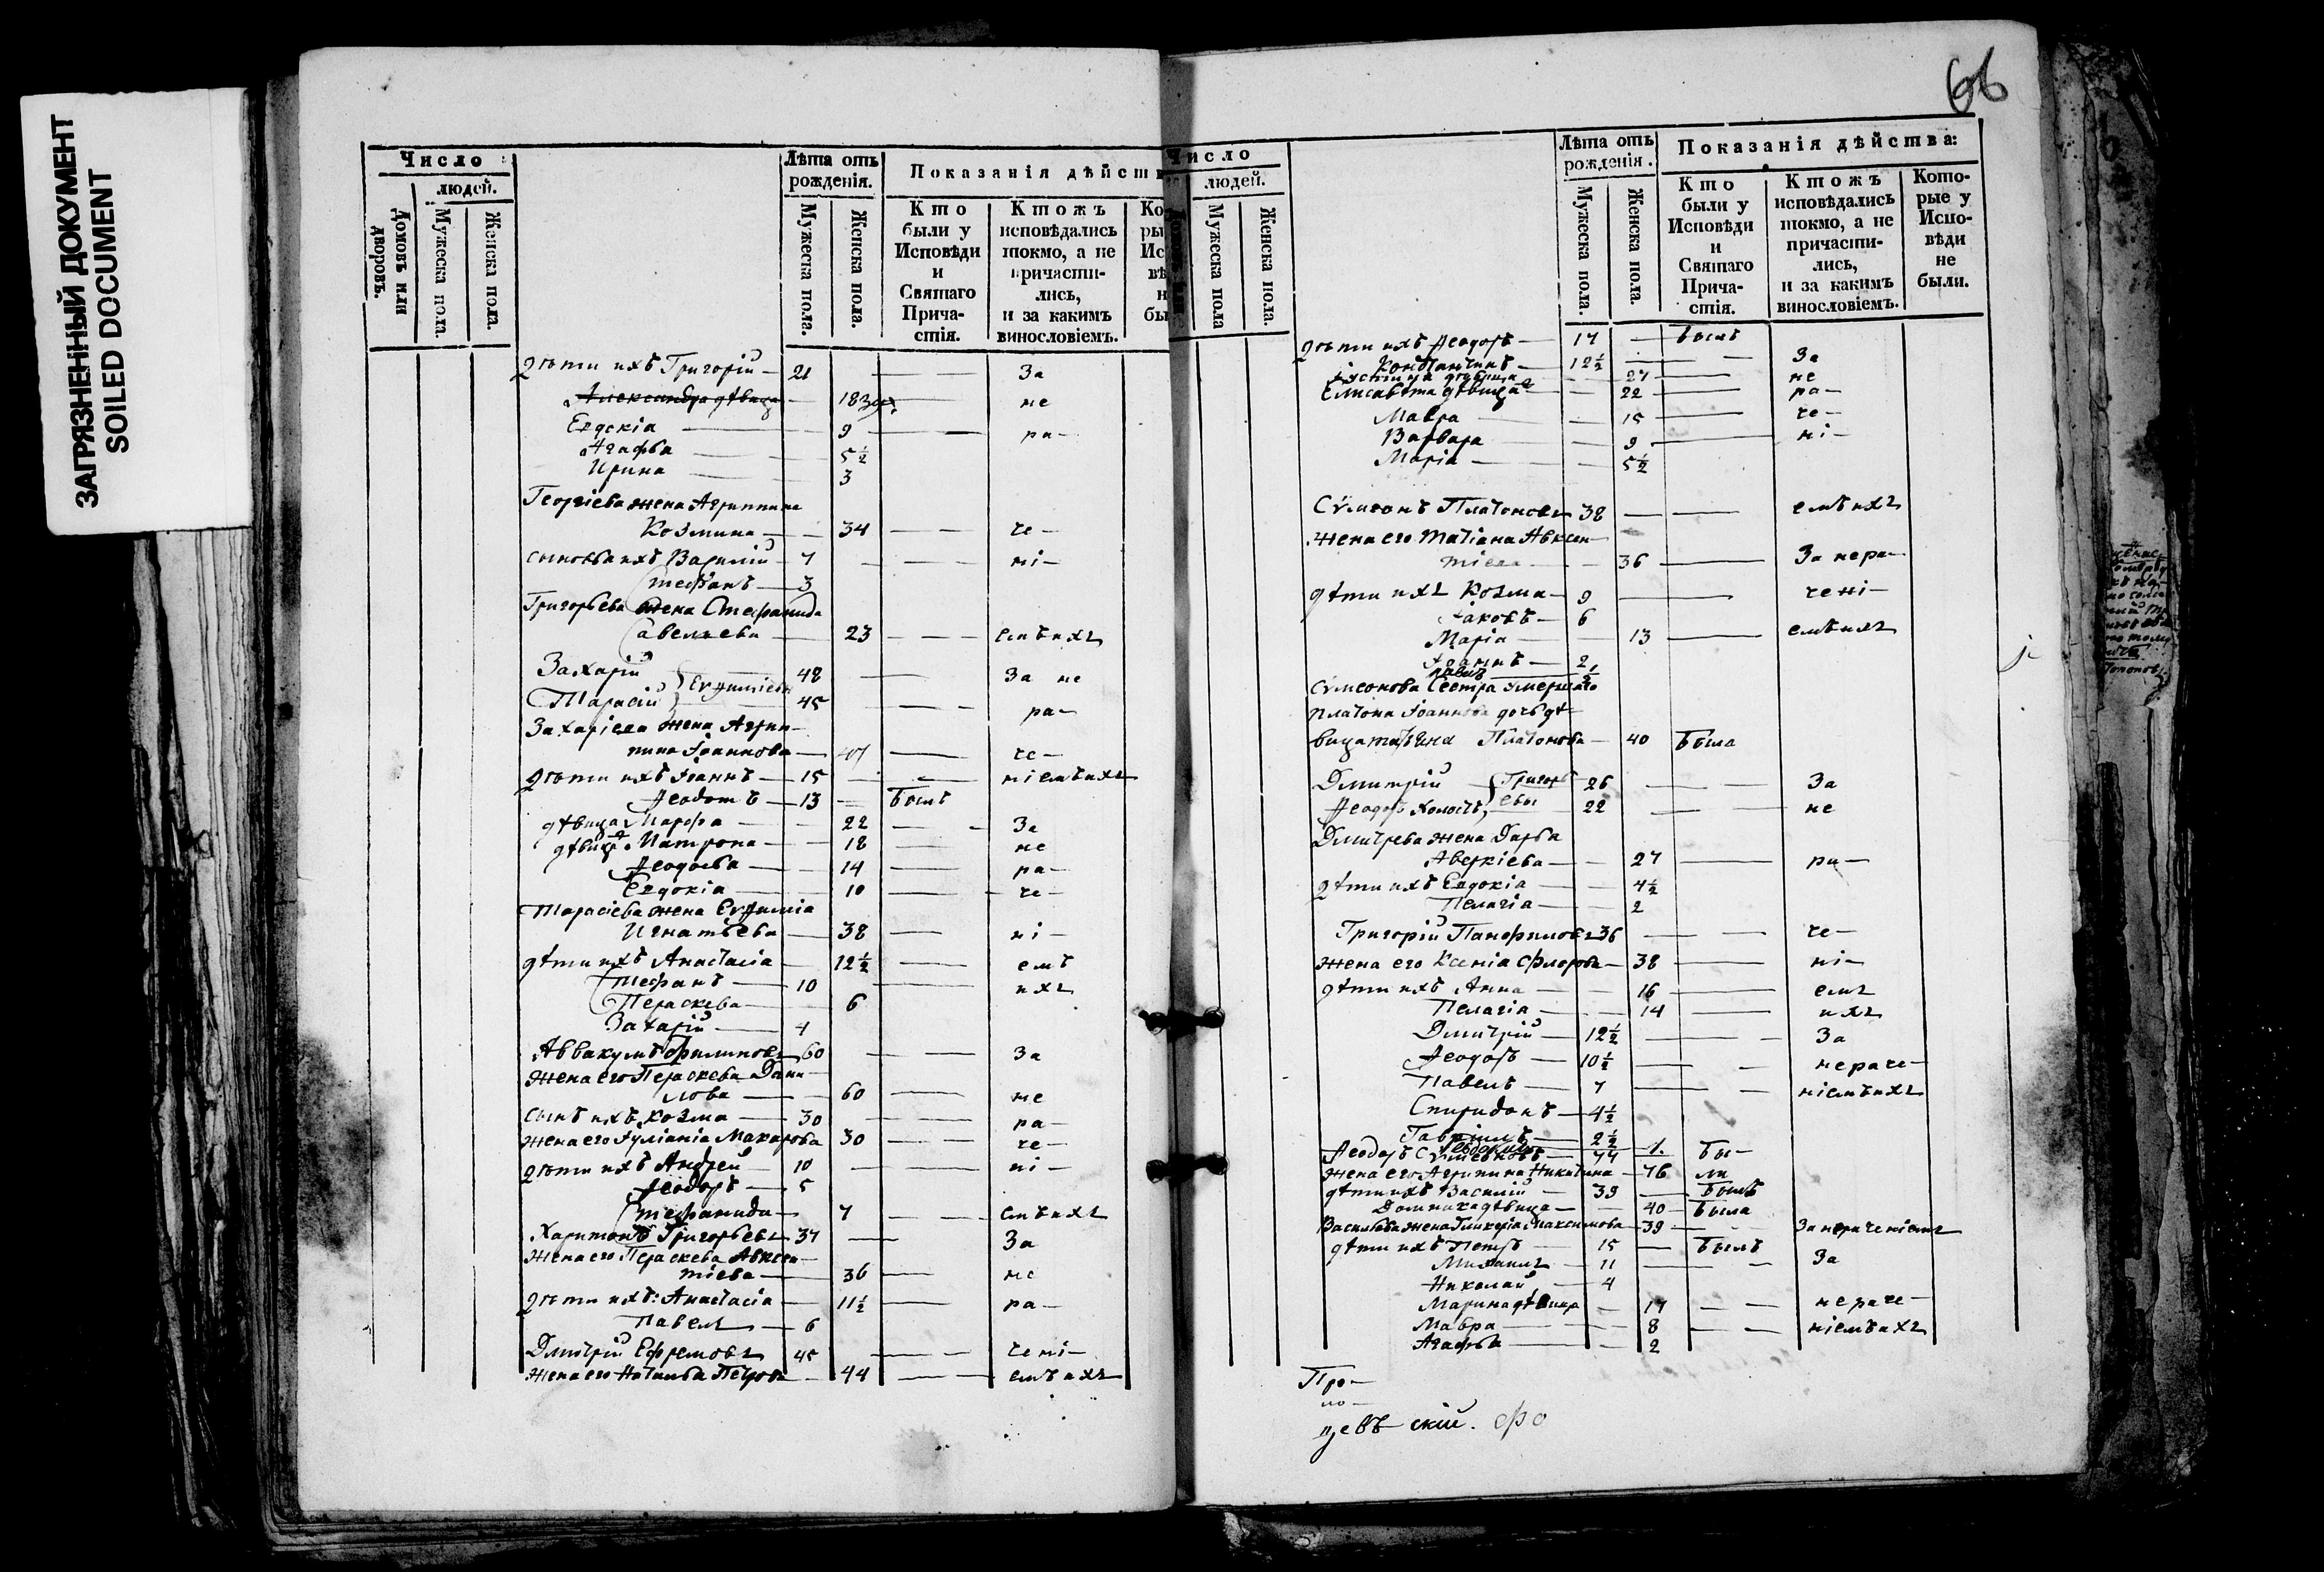 ЗАГРЯЗНЕННЫЙ ДОКУМЕНТ
SOILED DOCUMENT
Число
людей.
Домовъ или дворовъ.
Мужеска пола.
Женска пола.
Лѣта отъ рожденія.
Мужеска пола.
Женска пола.
Показанія дѣйств
Кто были у Исповѣди и Святаго Прича-стія.
Ктожъ исповѣдались токмо, а не причасти-лись, и за какимъ винословіемъ.
дѣти ихъ Григорій — 21 — — За
Александра дѣвица — 18 — не
Евдокія — 9 — ра-
Агафья — 5½
Ирина — 3
Георгіева жена Агриппина
Козмина — 34 — — че-
сыновья ихъ Василій — 7 — — ні-
Стефанъ — 3
Григорьева жена Стефанида
Савельева — 23 — — емъ ихъ
Захарій — 48 — — За не
Тарасій } Евфиміевы — 45 — — ра-
Захаріева жена Агрип-
пина Іоаннова — 47 — че-
дѣти ихъ Іоаннъ — 15 — — ніемъ ихъ
Ѳеодотъ — 13 — былъ
дѣвица Марфа — 22 — — За
дѣвица Матрона — 18 — не
Ѳеодосья — 14 — ра-
Евдокія — 10 — че-
Тарасіева жена Евфимія
Игнатьева — 38 — ні-
дѣти ихъ Анастасія — 12½ — емъ
Стефанъ — 10 — ихъ
Параскева — 6
Захарій — 4
Аввакумъ Филиповъ — 60 — — За
Жена его Параскева Дани-
лова — 60 — не
сынъ ихъ Козма — 30 — — ра-
жена его Іуліанія Макарова 30 — че-
дѣти ихъ Андрей — 10 — — ні-
Ѳеодоръ — 5
Стефанида — 7 — — емъ ихъ
Харитонъ Григорьевъ 37 — За
Жена его Параскева Авксен-
тіева — 36 — не
дѣти ихъ: Анастасія — 11½ — ра-
Павелъ — 6
Дмитрій Ефремовъ 45 — — чені-
жена его Наталья Петрова — 44 — — емъ ихъ
66
Число
людей.
Мужеска пола
Женска пола.
Лѣта отъ рожденія.
Мужеска пола.
Женска пола.
Показанія дѣйства:
Кто были у Исповѣди и Святаго Прича-стія.
Ктожъ исповѣдались токмо, а не причасти-лись, и за какимъ винословіемъ.
Кото-рые у Испо-вѣди не были.
дѣти ихъ Ѳеодоръ — 17 — былъ
Константинъ — 12½ — — За
Іустина дѣвица — 27 — не
Елисавета дѣвица — 22 — ра-
Мавра — 15 — че-
Варвара — 9 — ні-
Марія — 5½
Сѵмеонъ Платоновъ 38 — — емъ ихъ
Жена его Татіана Авксен-
тіева — 36 — За нера-
дѣти ихъ Козма — 9 — чені-
Іаковъ — 6
Марія — 13 — емъ ихъ
Іоаннъ — 2
Сѵмеонова Сестра умершаго
Платона Іоаннова дочь дѣ-
вица Татьяна Платонова — 40 Была
Дмитрій — 26 — — За
Ѳеодоръ холостъ } Григорьевы 22 — — не
Дмитрева жена Дарья
Аверкіева — 27 — ра-
дѣти ихъ Евдокія — 4½
Пелагія — 2
Григорій Панфиловъ 36 — — че-
жена его Ксенія Флорова — 38 — ні-
дѣти ихъ Анна — 16 — емъ
Пелагія — 14 — ихъ
Дмитрій — 12½ — — За
Ѳеодоръ — 10½ — — нераче-
Павелъ — 7 — — ніемъ ихъ
Спиридонъ — 4½
Гавріилъ — 2½
Ѳеодоръ — 77 — Бы-
жена его Агрипина Никитина — 76 ли
дѣти ихъ Василій — 39 — былъ
Домника дѣвица — 40 — Была
Васильева жена Гликерія Максимова — 39 — За нераченіемъ
дѣти ихъ Петръ — 15 — Былъ
Михаилъ — 11 — — За
Николай — 4
Марина дѣвица — 17 — — нераче-
Мавра — 8 — — ніемъ ихъ
Агафья — 2
Про-
цевъ скій. Фо